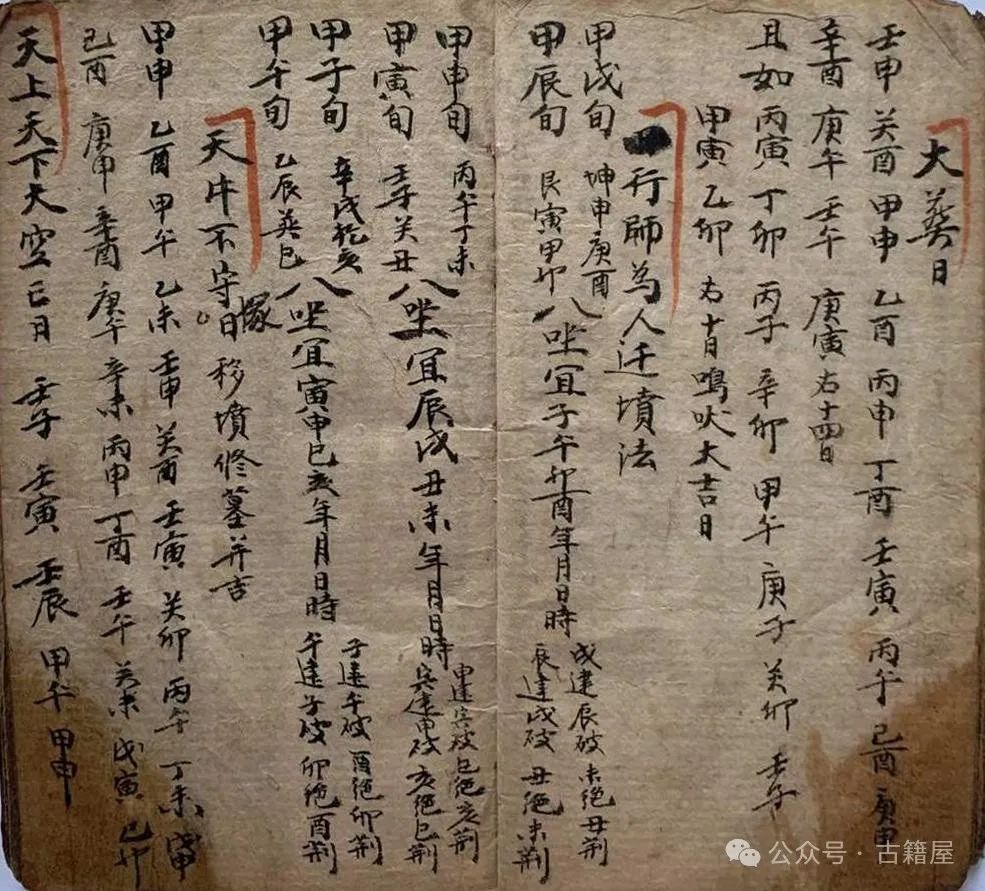 大葬日
壬申 癸酉 甲申 乙酉 丙申 丁酉 壬寅 丙午 己酉 庚申
辛酉 庚午 壬午 庚寅 右十四日
且如丙寅 丁卯 丙子 辛卯 甲午 庚子 癸卯 壬子
甲寅 乙卯 右十日鳴吠大吉日
一行師為人迁墳法
甲戌旬 坤申庚酉
甲辰旬 艮寅甲卯
八坐宜子午卯酉年月日時
戌建辰破 未絕丑荆
辰建戌破 丑絕未荆
甲申旬 丙午丁未
甲寅旬 壬子癸丑
八坐宜辰戌丑未年月日時
申建寅破 巳絕亥荆
寅建申破 亥絕巳荆
甲子旬 辛戌乾亥
甲午旬 乙辰巽巳
八坐宜寅申巳亥年月日時
子建午破 酉絕卯荆
午建子破 卯絕酉荆
天牛不守塚日 移墳修墓并吉
甲申 乙酉 甲午 乙未 壬申 癸酉 壬寅 癸卯 丙午 丁未 戊申
己酉 庚申 辛酉 庚午 辛未 丙申 丁酉 壬午 癸未 戊寅 己卯
天上天下大空亡日 壬子 壬寅 壬辰 甲午 甲申
公众号·古籍屋